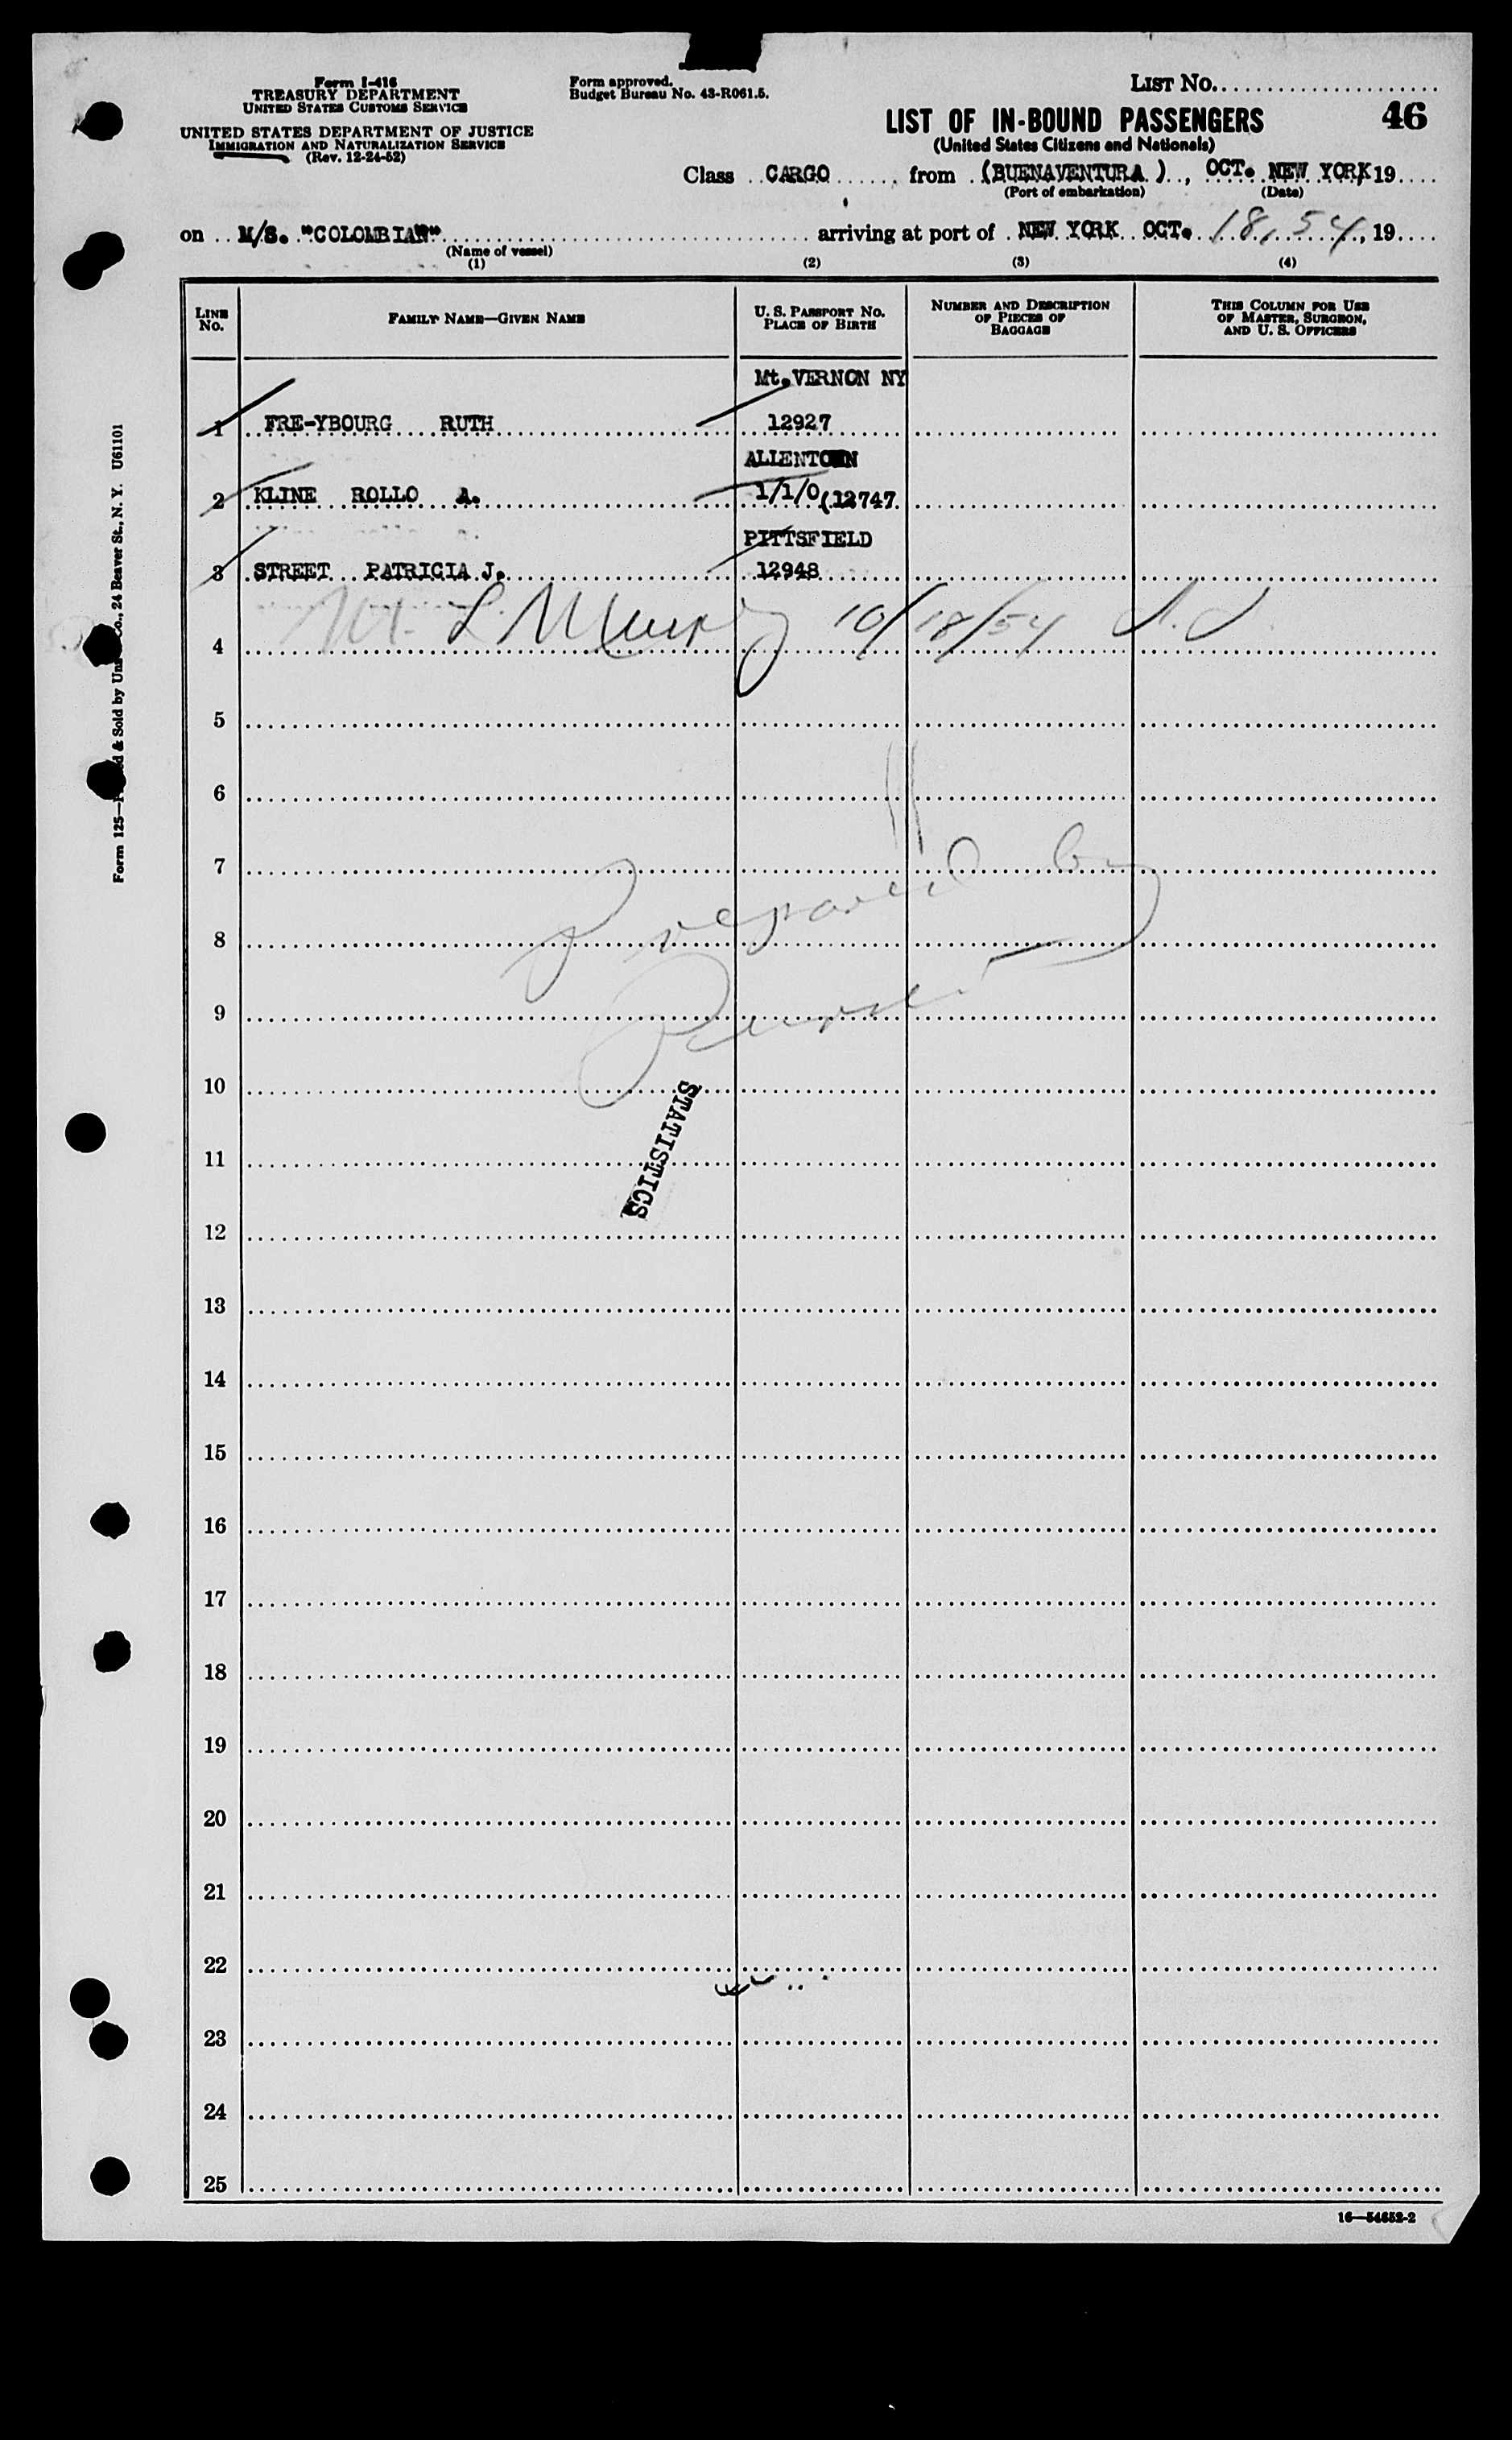 Form I-416
TREASURY DEPARTMENT
UNITED STATES CUSTOMS SERVICE
UNITED STATES DEPARTMENT OF JUSTICE
IMMIGRATION AND NATURALIZATION SERVICE
(Rev. 12-24-52)
Form approved.
Budget Bureau No. 43-R061.5.
LIST NO.
46
LIST OF IN-BOUND PASSENGERS
(United States Citizens and Nationals)
Class CARGO from (BUENAVENTURA ), OCT. NEW YORK, 19
(Port of embarkation) (Date)
on M/S. "COLOMBIAN" arriving at port of NEW YORK OCT. 18, 54, 19
(Name of vessel)
(1) (2) (3) (4)
LINE NO. FAMILY NAME—GIVEN NAME U. S. PASSPORT NO. PLACE OF BIRTH NUMBER AND DESCRIPTION OF PIECES OF BAGGAGE THIS COLUMN FOR USE OF MASTER, SURGEON, AND U. S. OFFICERS
Mt. VERNON NY
1 FRE-YBOURG RUTH 12927
ALLENTOWN
2 KLINE ROLLO A. 1/1/0 (12747
PITTSFIELD
3 STREET PATRICIA J. 12948
4 10/18/54
5
6
7
8
Prepared by
9
Purser
10
STATISTICS
11
12
13
14
15
16
17
18
19
20
21
22
23
24
25
16—54652-2
Form 125— & Sold by Co., 24 Beaver St., N. Y. U61101